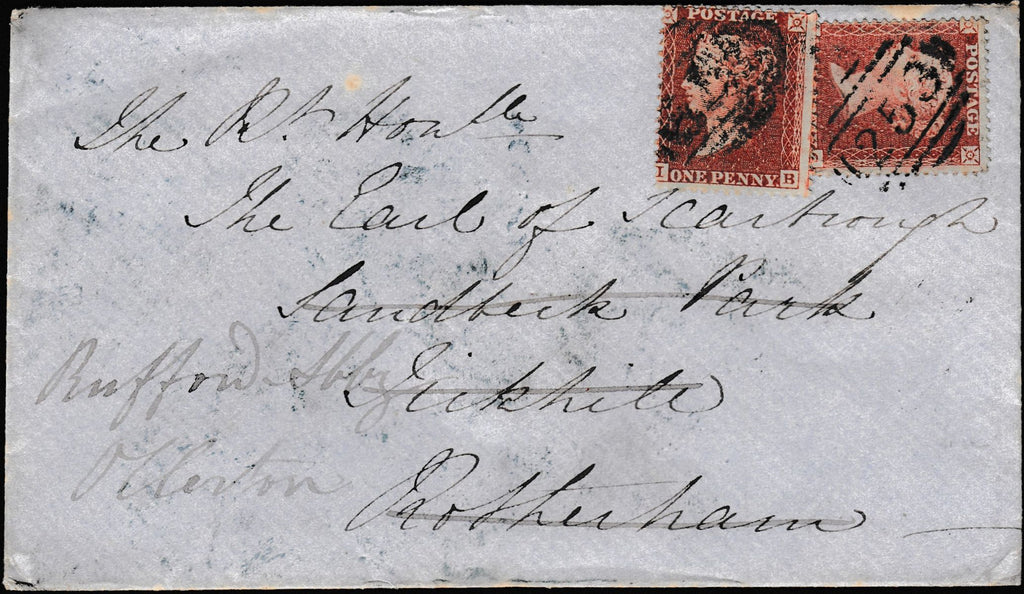 POSTAGE
ONE PENNY.
I B
POSTAGE
253
The Rt Honble
The Earl of Scarbrough
Sandbeck Park
Tickhill
Rotherham
Rufford Abby
Ollerton